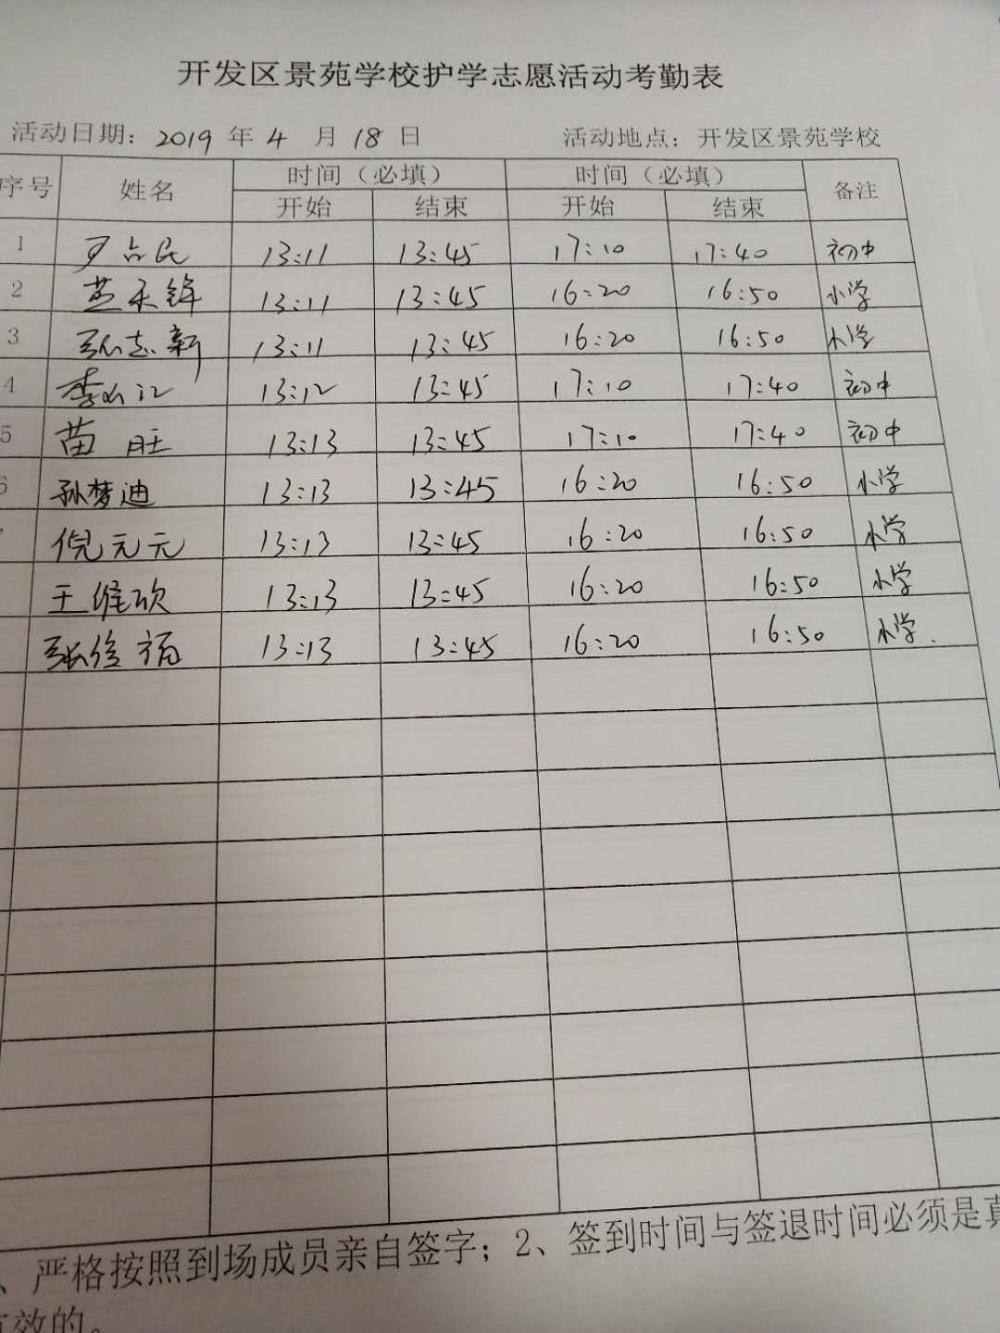 开发区景苑学校护学志愿活动考勤表
活动日期：2019 年 4 月 18 日 活动地点：开发区景苑学校
序号 姓名 时间（必填） 时间（必填） 备注
开始 结束 开始 结束
1 占民 13:11 13:45 17:10 17:40 初中
2 13:11 13:45 16:20 16:50 小学
3 张志新 13:11 13:45 16:20 16:50 小学
4 李 江 13:12 13:45 17:10 17:40 初中
5 苗旺 13:13 13:45 17:10 17:40 初中
6 孙梦迪 13:13 13:45 16:20 16:50 小学
倪元元 13:13 13:45 16:20 16:50 小学
王维欣 13:13 13:45 16:20 16:50 小学
张 13:13 13:45 16:20 16:50 小学.
、严格按照到场成员亲自签字；2、签到时间与签退时间必须是真
有效的。